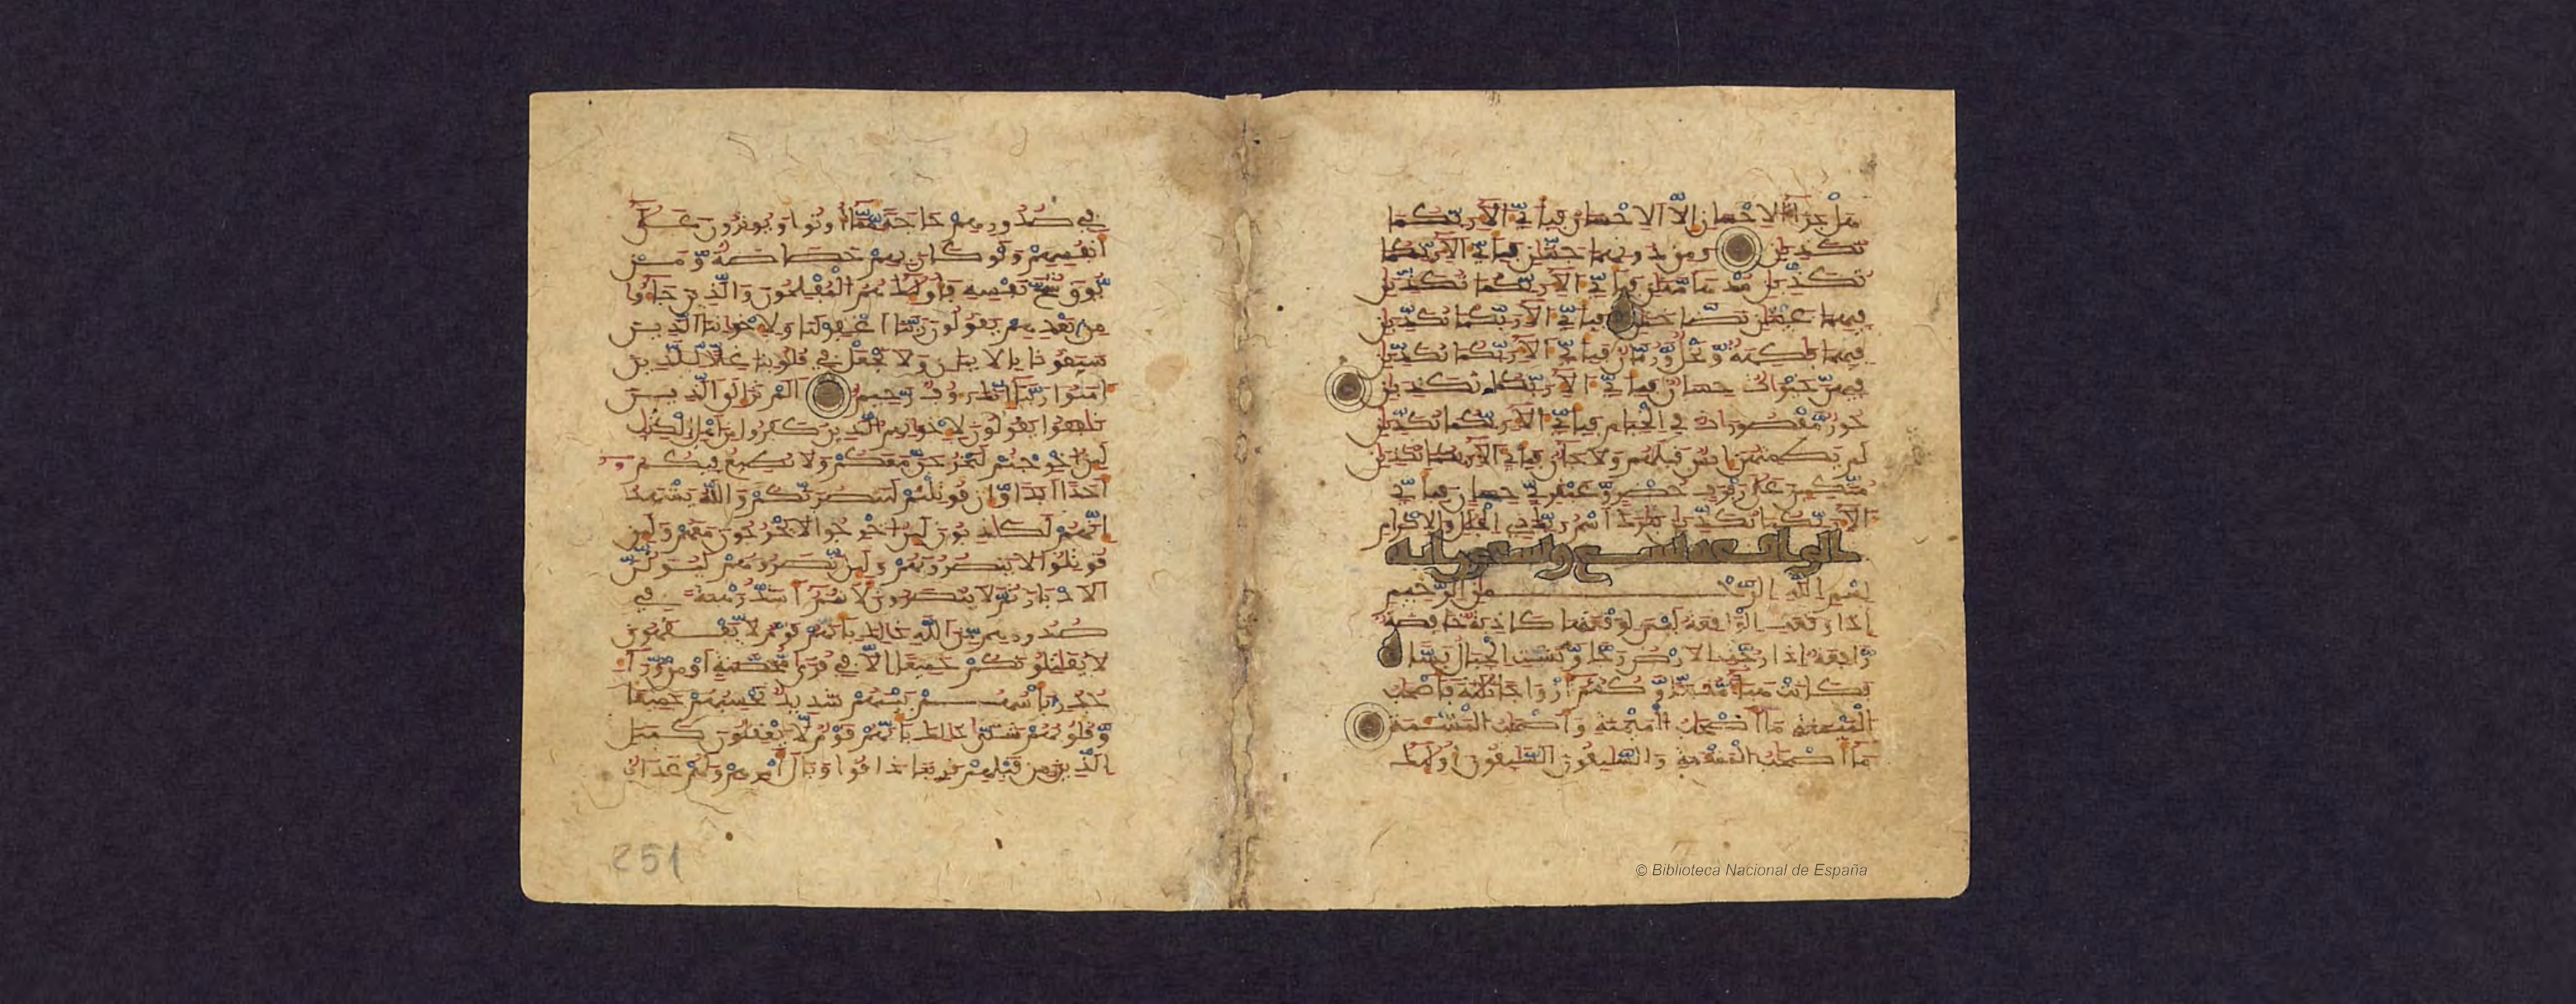 هَلْ جَزَاءُ الِاحْسَانِ إِلَّا اَلِاحْسَانُ فَبِأَيِّ ءَالَاءِ رَبِّكُمَا
تُكَذِّبَانِ وَمِن دُونِهِمَا جَنَّتَانِ فَبِأَيِّ ءَالَاءِ رَبِّكُمَا
تُكَذِّبَانِ مُدْهَامَّتَانِ فَبِأَيِّ ءَالَاءِ رَبِّكُمَا تُكَذِّبَانِ
فِيهِمَا عَيْنَانِ نَضَّاخَتَانِ فَبِأَيِّ ءَالَاءِ رَبِّكُمَا تُكَذِّبَانِ
فِيهِمَا فَاكِهَةٌ وَّنَخْلٌ وَّرُمَّانٌ فَبِأَيِّ ءَالَاءِ رَبِّكُمَا تُكَذِّبَانِ
فِيهِنَّ خَيْرَاتٌ حِسَانٌ فَبِأَيِّ ءَالَاءِ رَبِّكُمَا تُكَذِّبَانِ
حُورٌ مَّقْصُورَاتٌ فِي اِلْخِيَامِ فَبِأَيِّ ءَالَاءِ رَبِّكُمَا تُكَذِّبَانِ
لَمْ يَطْمِثْهُنَّ إِنسٌ قَبْلَهُمْ وَلَا جَانٌّ فَبِأَيِّ ءَالَاءِ رَبِّكُمَا تُكَذِّبَانِ
مُتَّكِـِٕينَ عَلَى رَفْرَفٍ خُضْرٍ وَّعَبْقَرِيٍّ حِسَانٍ فَبِأَيِّ
ءَالَاءِ رَبِّكُمَا تُكَذِّبَانِ تَبَارَكَ اَسْمُ رَبِّكَ ذِي اِلْجَلَالِ وَالِاكْرَامِ
الواقعة تسع وتسعون اية
بِسْمِ اللَّهِ الرَّحْمَنِ الرَّحِيمِ
إِذَا وَقَعَتِ اِلْوَاقِعَةُ لَيْسَ لِوَقْعَتِهَا كَاذِبَةٌ خَافِضَةٌ
رَّافِعَةٌ إِذَا رُجَّتِ اِلَارْضُ رَجًّا وَّبُسَّتِ اِلْجِبَالُ بَسًّا
فَكَانَتْ هَبَاءً مُّنبَثًّا وَّكُنتُمْ أَزْوَاجًا ثَلَاثَةً فَأَصْحَابُ
اُلْمَيْمَنَةِ مَا أَصْحَابُ اُلْمَيْمَنَةِ وَأَصْحَابُ اُلْمَشْـَٔمَةِ
مَا أَصْحَابُ اُلْمَشْـَٔمَةِ وَالسَّابِقُونَ اَلسَّابِقُونَ أُوْلَئِكَ
فِي صُدُورِهِمْ حَاجَةً مِّمَّا أُوتُوا وَيُوثِرُونَ عَلَى
أَنفُسِهِمْ وَلَوْ كَانَ بِهِمْ خَصَاصَةٌ وَّمَنْ
يُّوقَ شُحَّ نَفْسِهِ فَأُوْلَئِكَ هُمُ اُلْمُفْلِحُونَ وَالَّذِينَ جَاءُو
مِن بَعْدِهِمْ يَقُولُونَ رَبَّنَا اَغْفِرْ لَنَا وَلِإِخْوَانِنَا اَلَّذِينَ
سَبَقُونَا بِالِايمَانِ وَلَا تَجْعَلْ فِي قُلُوبِنَا غِلًّا لِّلَّذِينَ
ءَامَنُوا رَبَّنَا إِنَّكَ رَءُوفٌ رَّحِيمٌ أَلَمْ تَرَ إِلَى اَلَّذِينَ
نَافَقُوا يَقُولُونَ لِإِخْوَانِهِمُ اُلَّذِينَ كَفَرُوا مِنَ اَهْلِ اِلْكِتَابِ
لَئِنُ اخْرِجْتُمْ لَنَخْرُجَنَّ مَعَكُمْ وَلَا نُطِيعُ فِيكُمُ
أَحَدًا أَبَدًا وَّإِن قُوتِلْتُمْ لَنَنصُرَنَّكُمْ وَاللَّهُ يَشْهَدُ
إِنَّهُمْ لَكَاذِبُونَ لَئِنُ اخْرِجُوا لَا يَخْرُجُونَ مَعَهُمْ وَلَئِن
قُوتِلُوا لَا يَنصُرُونَهُمْ وَلَئِن نَّصَرُوهُمْ لَيُوَلُّنَّ
اَلَادْبَارَ ثُمَّ لَا يُنصَرُونَ لَأَنتُمُ أَشَدُّ رَهْبَةً فِي
صُدُورِهِم مِّنَ اَللَّهِ ذَلِكَ بِأَنَّهُمْ قَوْمٌ لَّا يَفْقَهُونَ
لَا يُقَاتِلُونَكُمْ جَمِيعًا إِلَّا فِي قُرًى مُّحَصَّنَةٍ أَوْ مِنْ وَّرَاءِ
جُدُرٍ بَأْسُهُمْ بَيْنَهُمْ شَدِيدٌ تَحْسِبُهُمْ جَمِيعًا
وَّقُلُوبُهُمْ شَتَّى ذَلِكَ بِأَنَّهُمْ قَوْمٌ لَّا يَعْقِلُونَ كَمَثَلِ
اِلَّذِينَ مِن قَبْلِهِمْ قَرِيبًا ذَاقُوا وَبَالَ أَمْرِهِمْ وَلَهُمْ عَذَابٌ
251
© Biblioteca Nacional de España